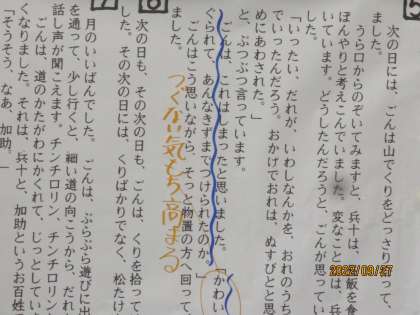 5
次の日には、ごんは山でくりをどっさり
ました。
うら口からのぞいてみますと、兵十は、昼飯を食
ぼんやりと考えこんでいました。変なことには、兵
いています。どうしたんだろうと、ごんが思ってい
した。
「いったい、だれが、いわしなんかを、おれのうち
でいったんだろう。おかげでおれは、ぬすびとと思
めにあわされた。」
と、ぶつぶつ言っています。
ごんは、これはしまったと思いました。「かわい
ぐられて、あんなきずまでつけられたのか。」
ごんはこう思いながら、そっと物置の方へ回って
ました。
つぐない気もち高まる
6
次の日も、その次の日も、ごんは、くりを拾って
した。その次の日には、くりばかりでなく、松たけ
7
月のいいばんでした。ごんは、ぶらぶら遊びに出
を通って、少し行くと、細い道の向こうから、だれ
話し声が聞こえます。チンチロリン、チンチロリン
ごんは、道のかたがわにかくれて、じっとしてい
くなりました。それは、兵十と、加助というお百姓
「そうそう、なあ、加助。」